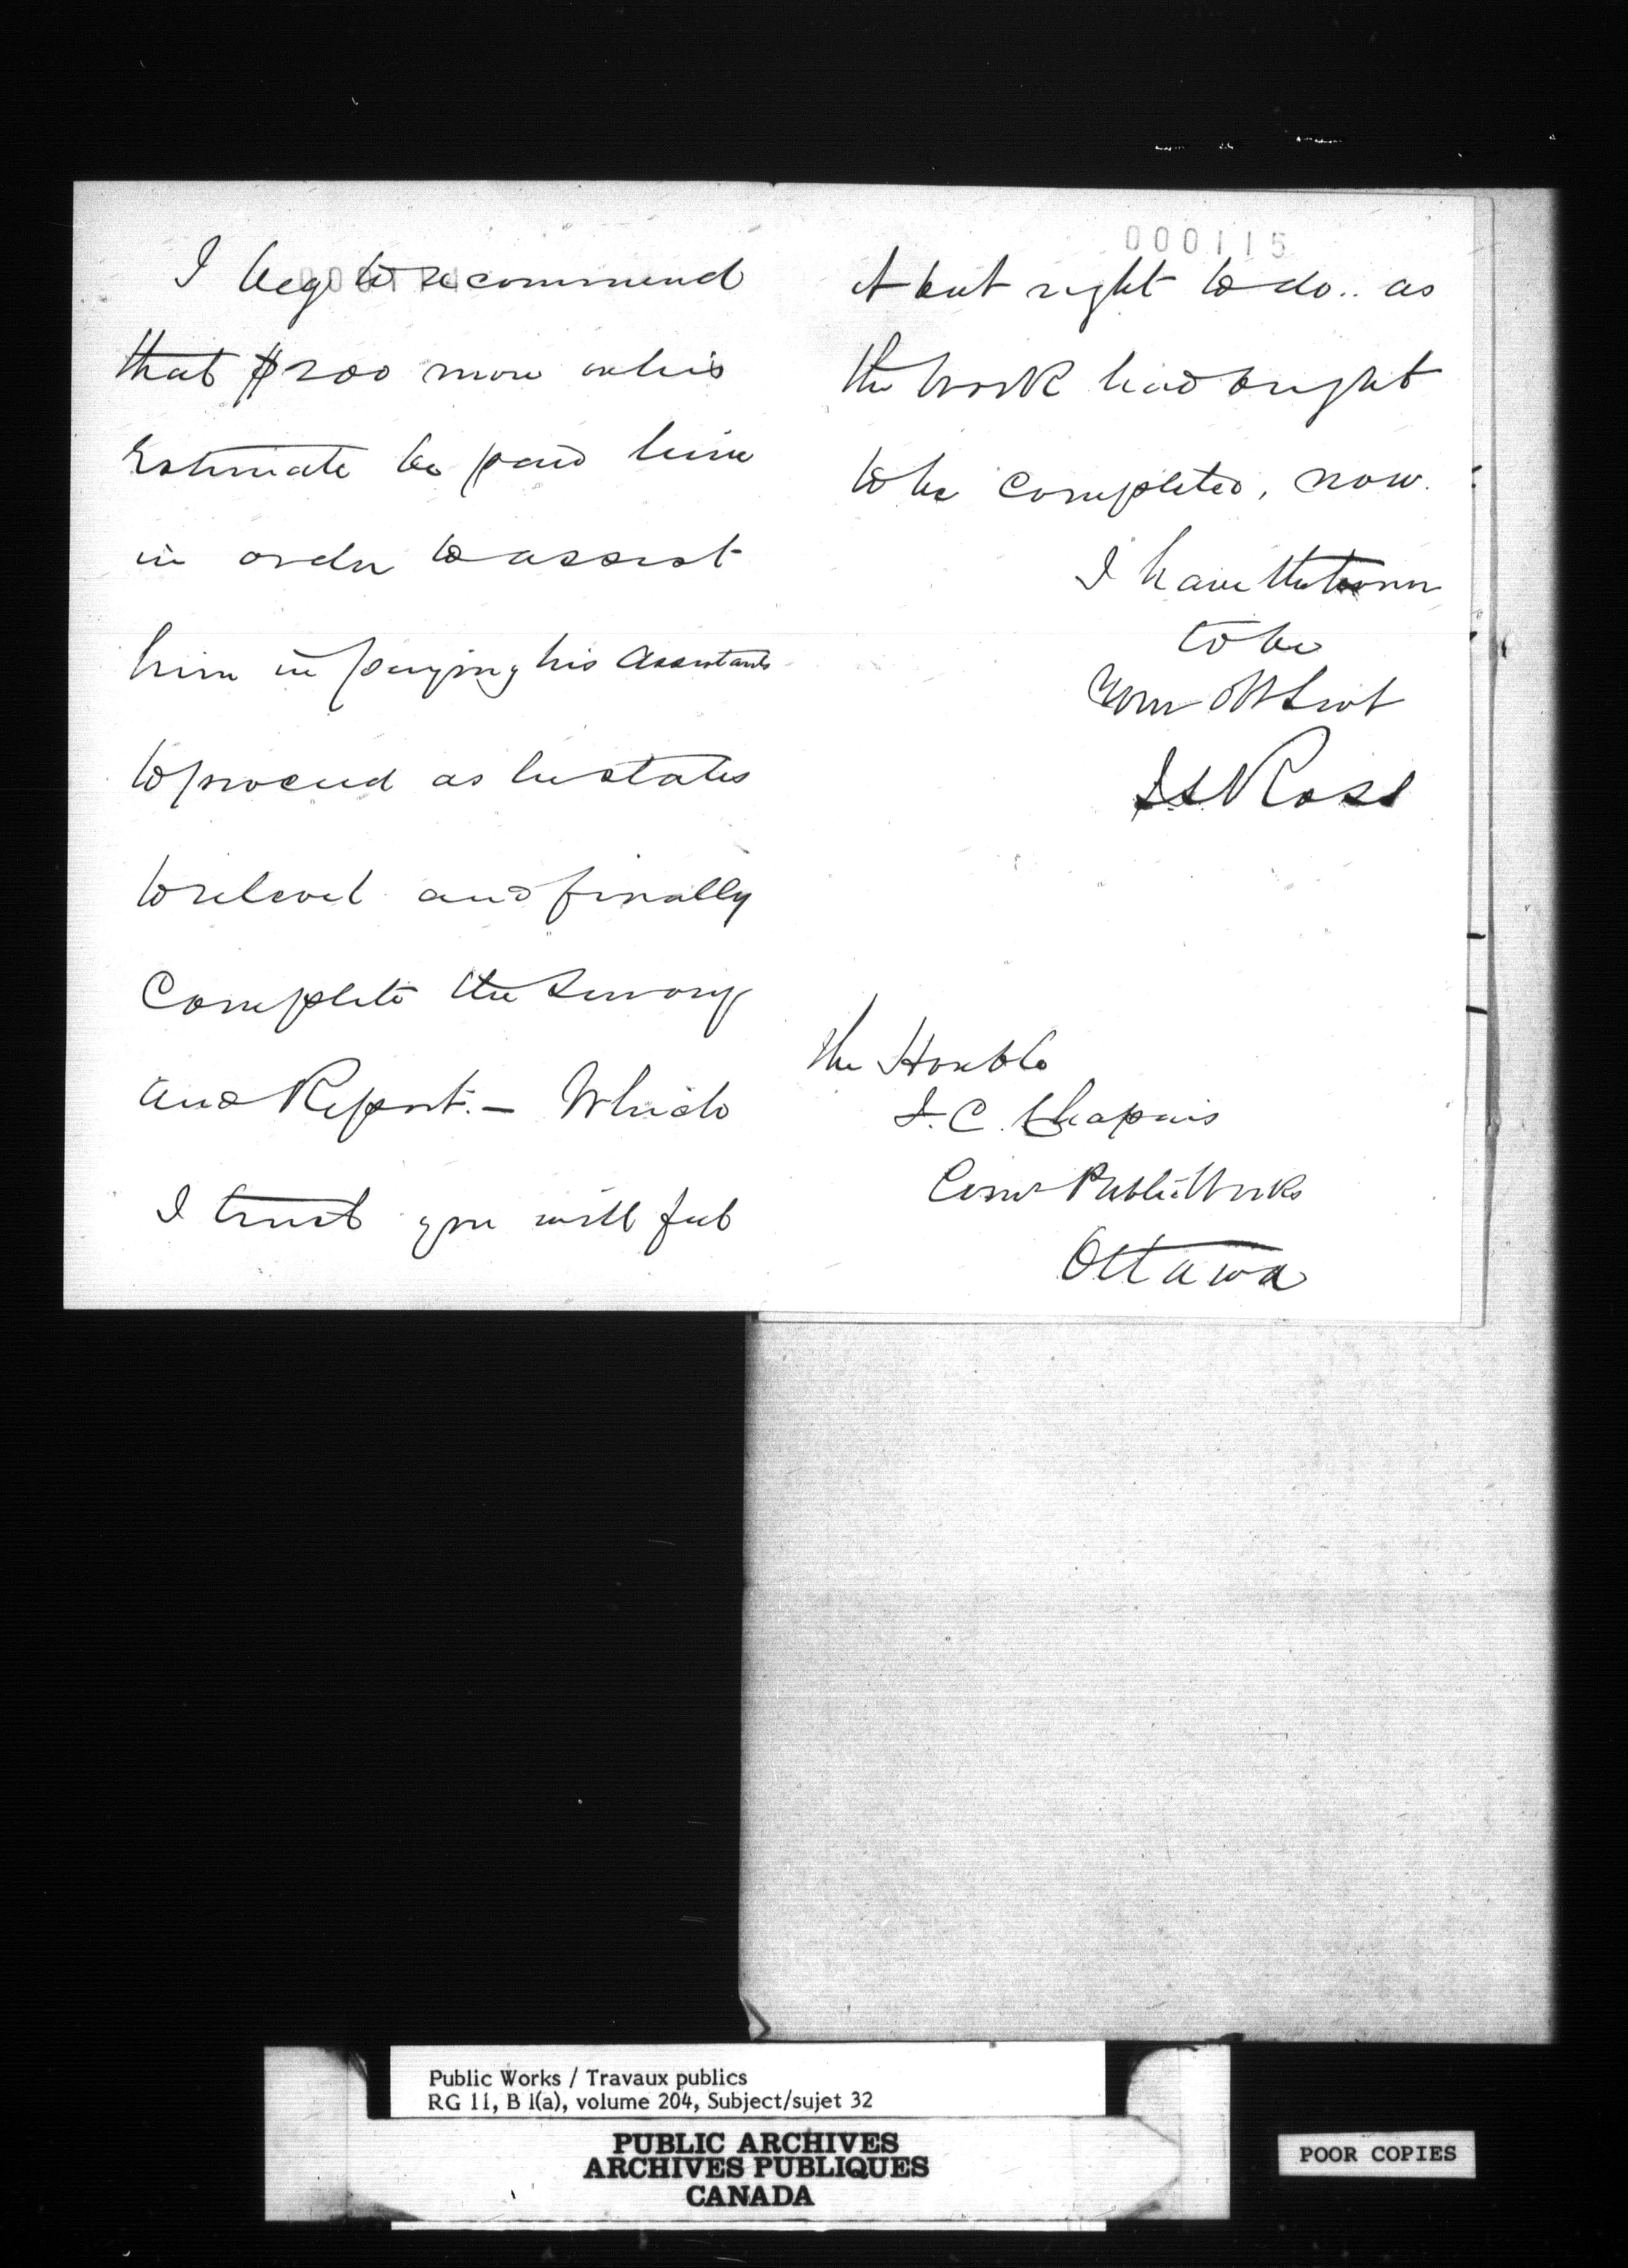 000114
I beg to recommend
that $200 more on his
Estimate be paid him
in order to assist
him in paying his Assistants
to proceed as he states
to relevel and finally
Complete the Survey
and Report. — Which
I trust you will feel
000115
it but right to do.. as
the work had ought
to be completed, now.
I have the honor
to be
Your Obt Svt
Ross
The Honble
J. C. Chapais
Comr Public Works
Ottawa
Public Works / Travaux publics
RG 11, B 1(a), volume 204, Subject/sujet 32
PUBLIC ARCHIVES
ARCHIVES PUBLIQUES
CANADA
POOR COPIES